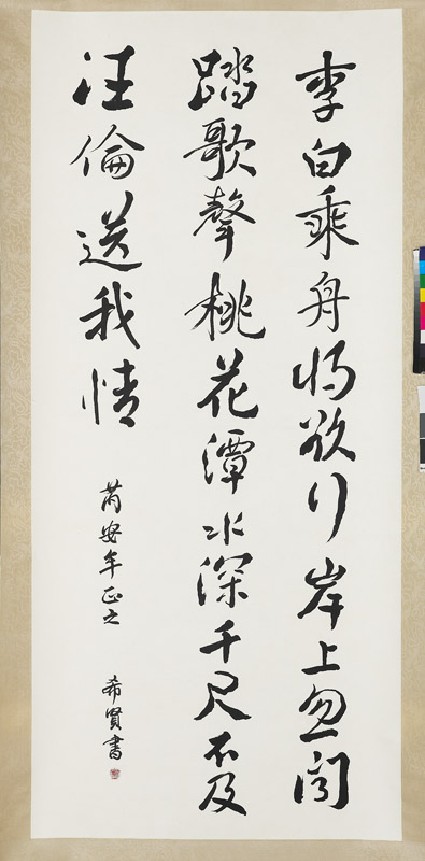 李白乘舟将欲行岸上忽聞
踏歌聲桃花潭水深千尺不及
汪倫送我情
安年正之
希賢書